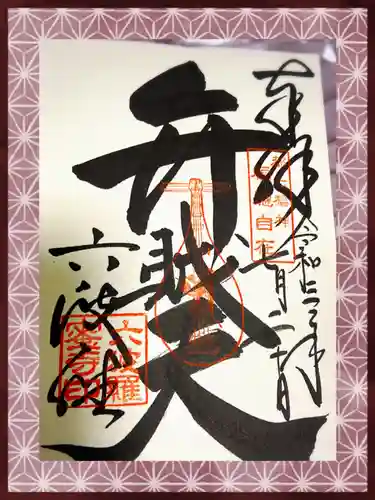 奉拝
令和二年
七月二十日
弁戝天
六波羅
自在
六波羅
蜜寺印